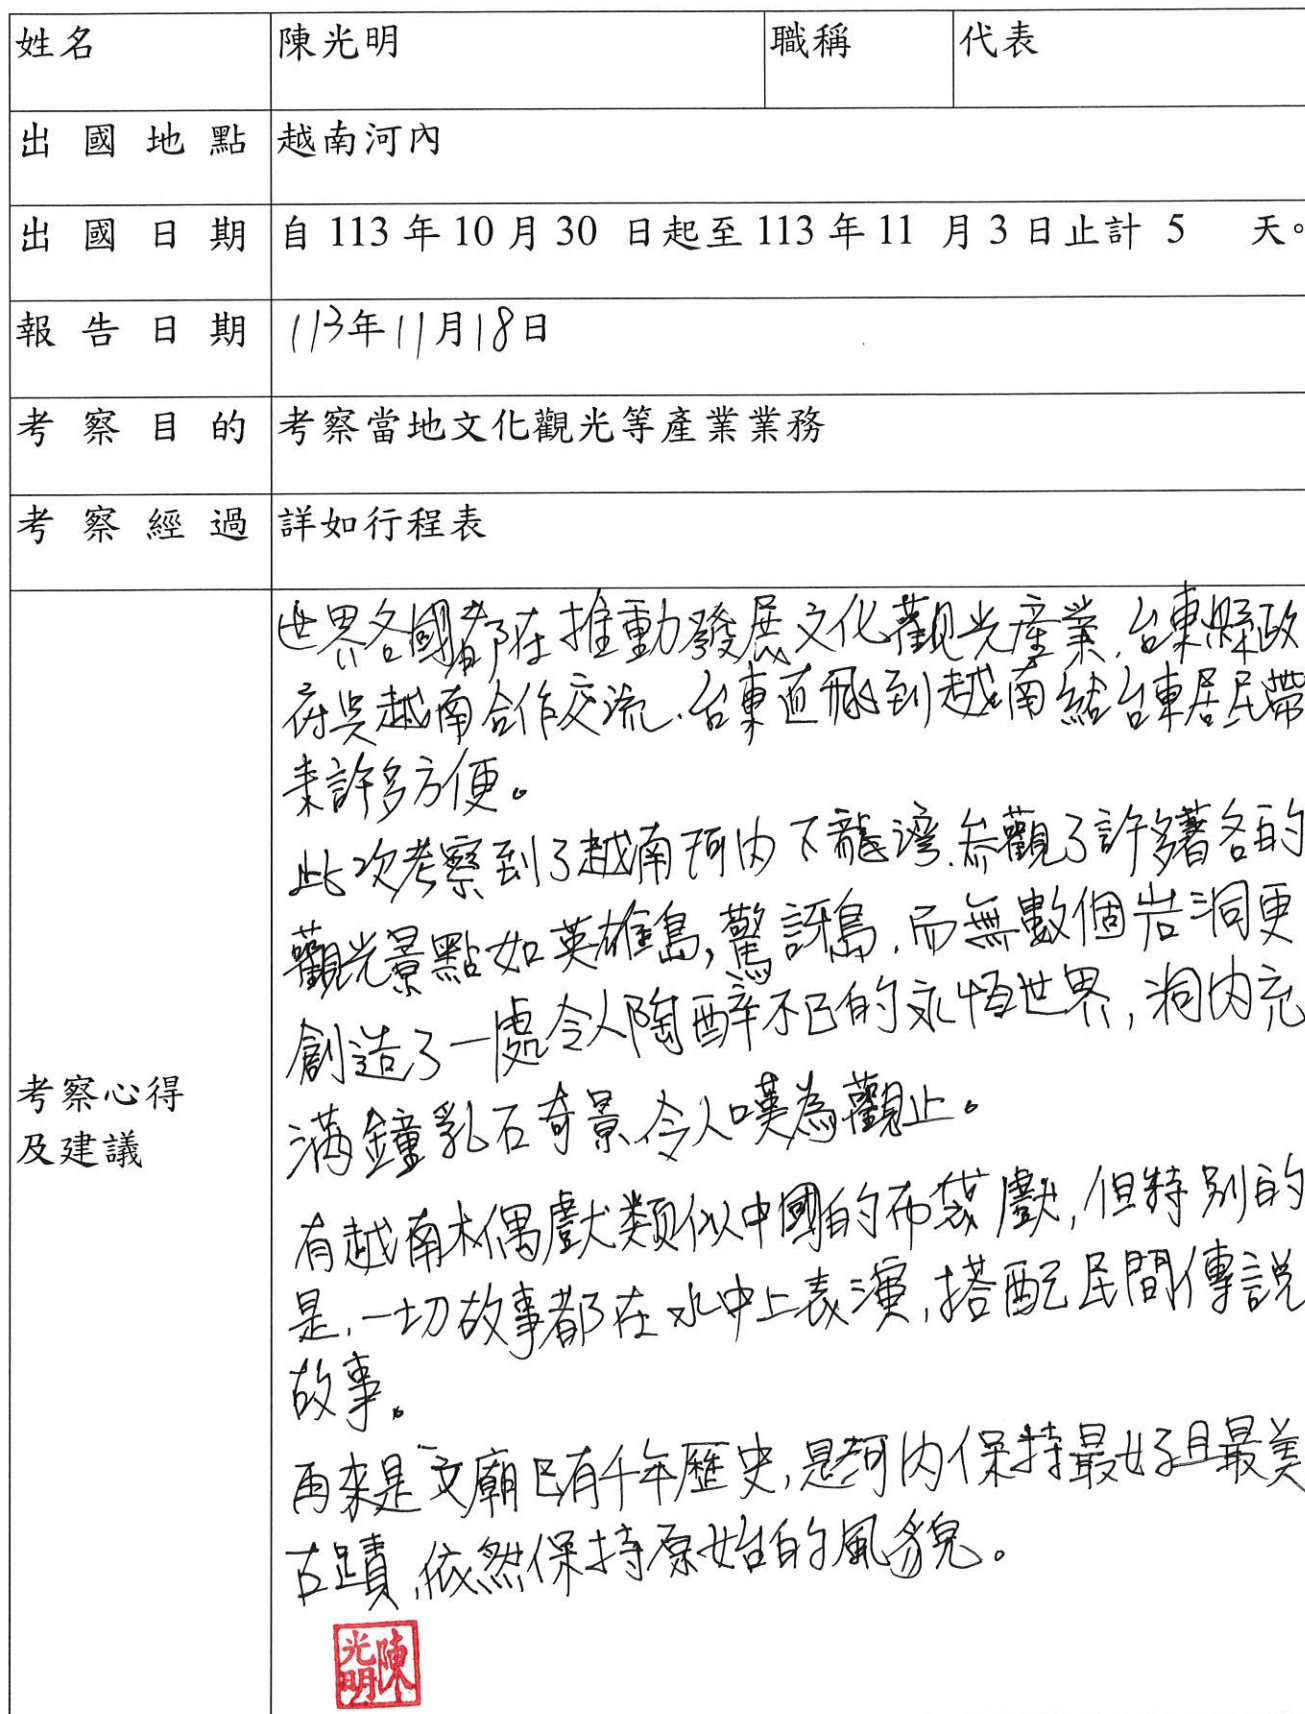 姓名 陳光明 職稱 代表
出國地點 越南河內
出國日期 自 113 年 10 月 30 日起至 113 年 11 月 3 日止計 5 天。
報告日期 113年11月18日
考察目的 考察當地文化觀光等產業業務
考察經過 詳如行程表
考察心得
及建議
世界各國都在推動發展文化觀光產業,台東縣政
府與越南合作交流.台東直飛到越南給台東居民帶
來許多方便。
此次考察到了越南河內下龍灣.參觀了許多著名的
觀光景點如英雄島,驚訝島,而無數個岩洞更
創造了一處令人陶醉不已的永恆世界,洞內充
滿鐘乳石奇景,令人嘆為觀止。
有越南木偶戲類似中國的布袋戲,但特別的
是,一切故事都在水中上表演,搭配民間傳說
故事。
再來是文廟已有千年歷史,是河內保持最好且最美
古蹟,依然保持原始的風貌。
陳光明